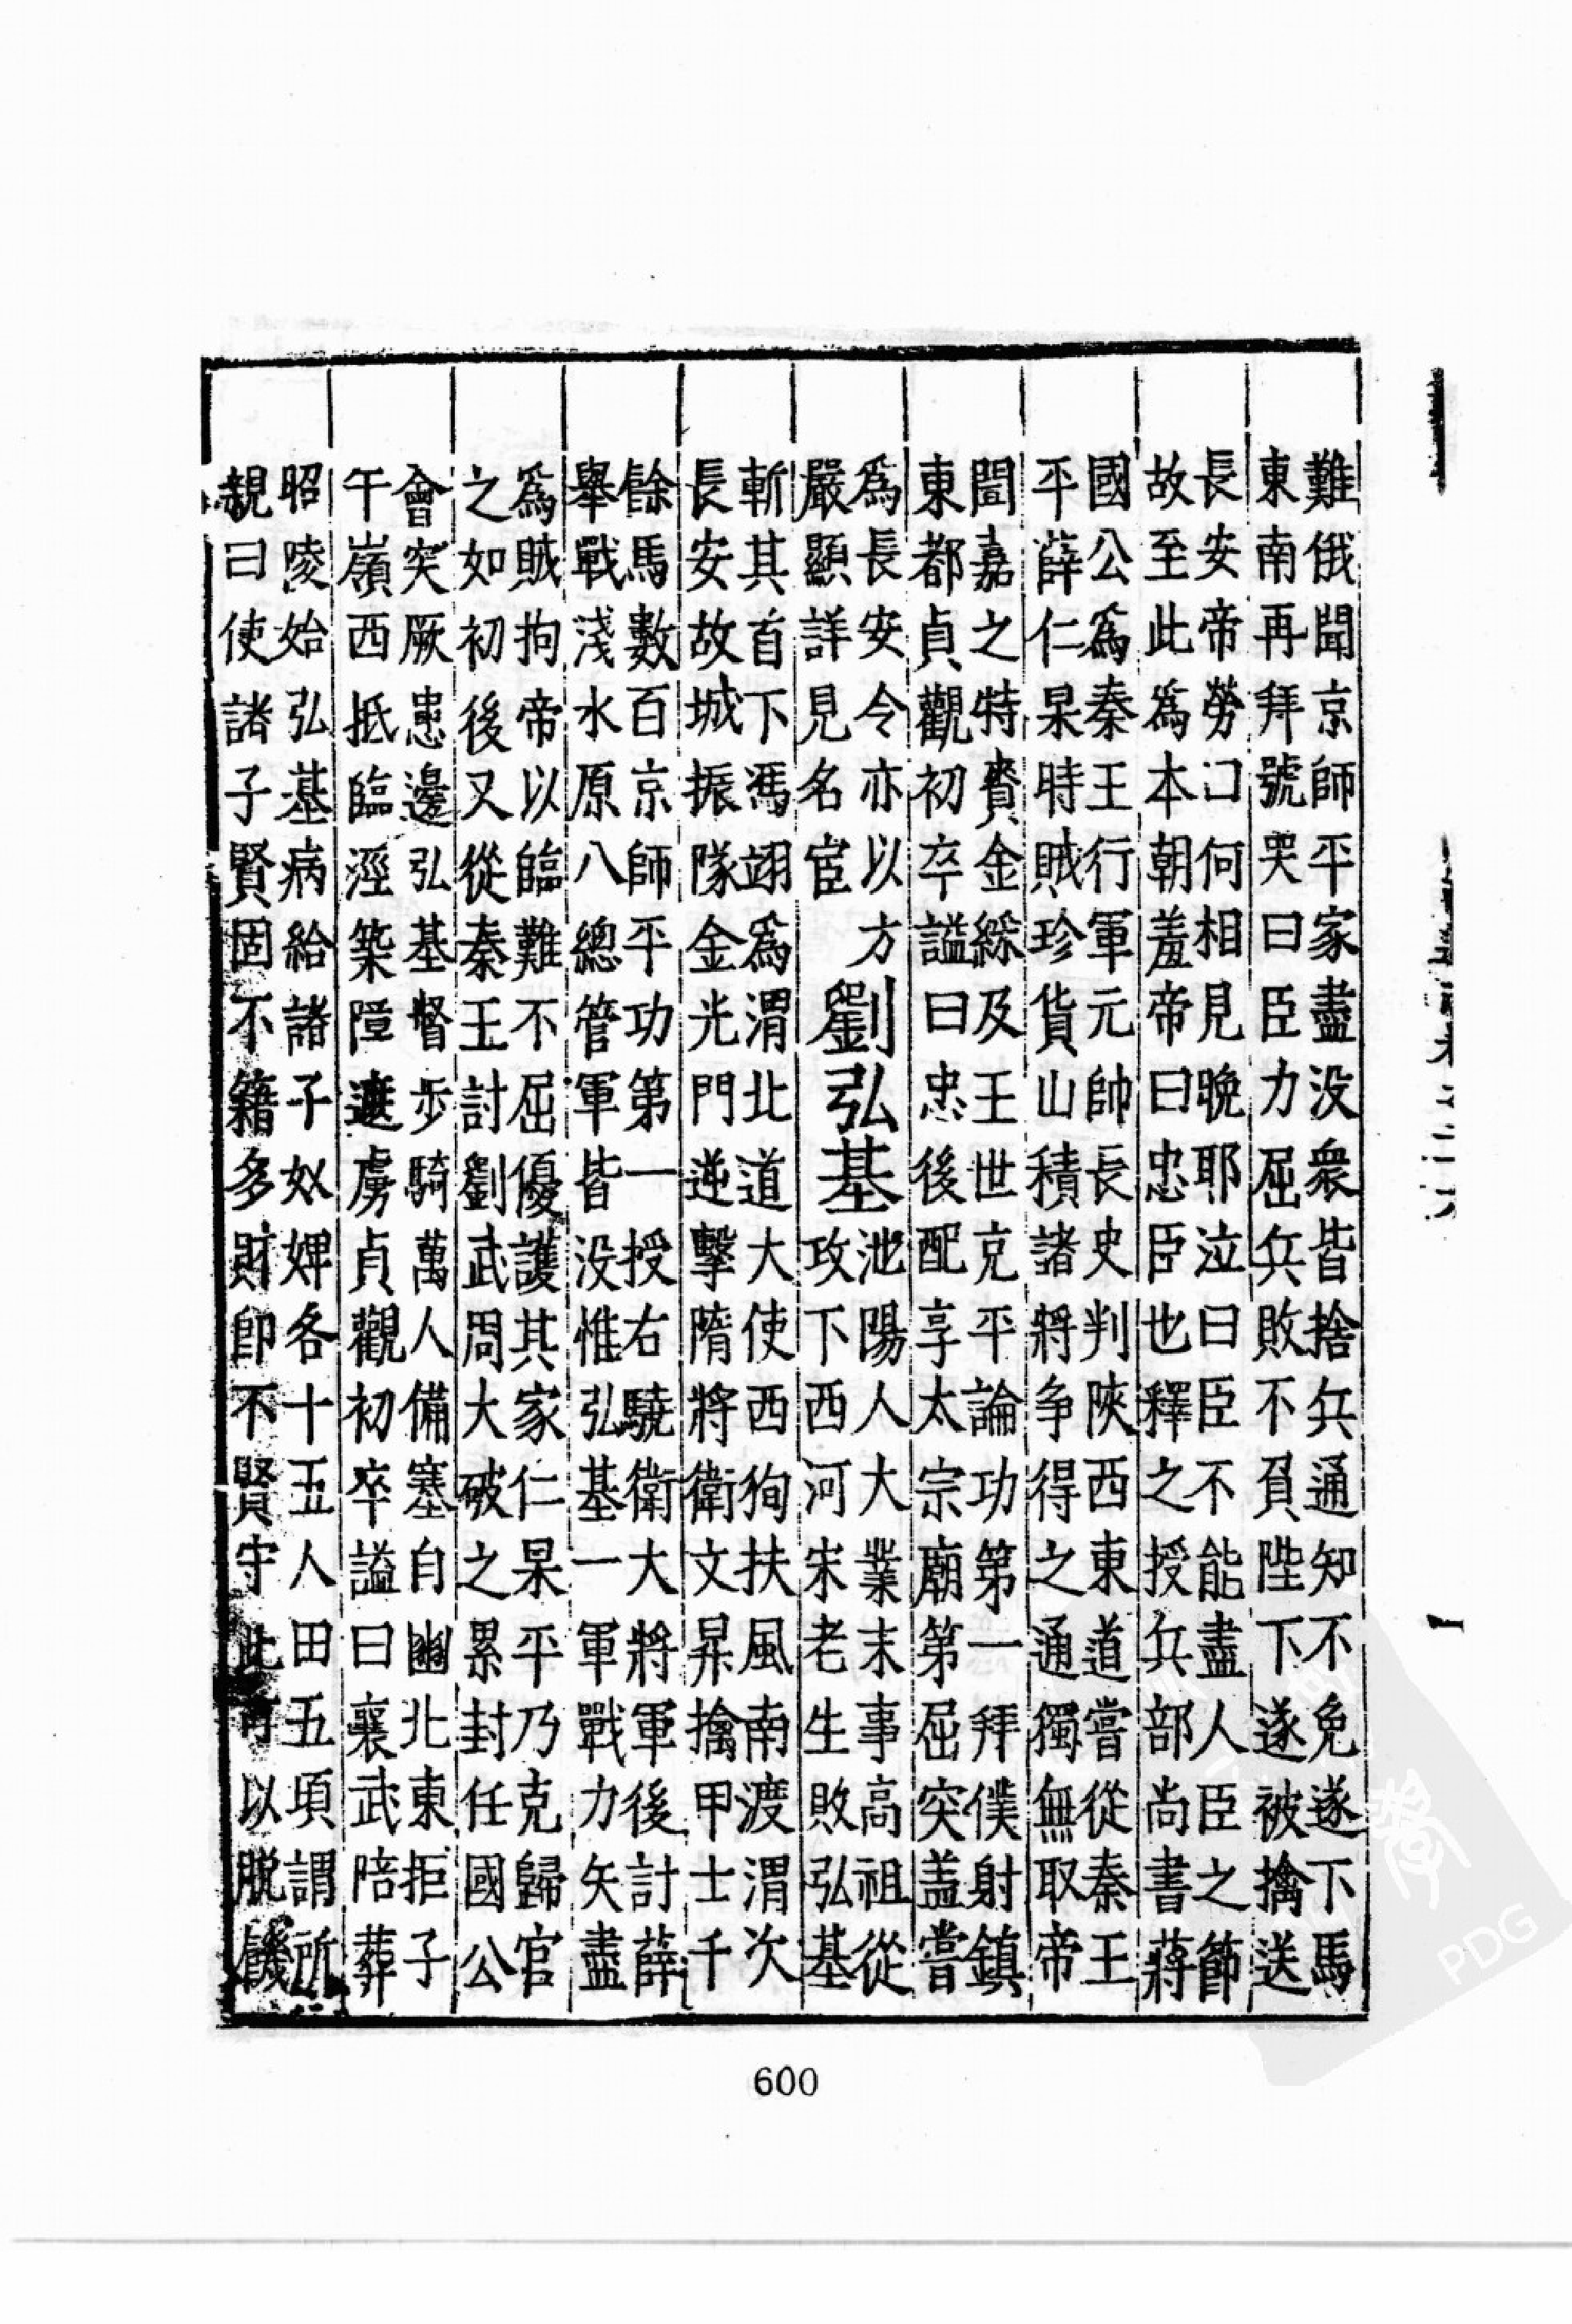 難俄聞京師平家盡没衆皆捨兵通知不免遂下馬
東南再拜號哭曰臣力屈兵敗不負陛下遂被擒送
長安帝勞口何相見晚耶泣曰臣不能盡人臣之節
故至此爲本朝羞帝曰忠臣也釋之授兵部尚書蔣
國公爲秦王行軍元帥長史判陝西東道嘗從秦王
平薛仁杲時賊珍貨山積諸將争得之通獨無取帝
聞嘉之特賚金綵及王世充平論功第一拜僕射鎮
東都貞觀初卒謚曰忠後配享太宗廟第屈突盖嘗
爲長安令亦以方
嚴顯詳見名宦
劉弘基
池陽人大業末事高祖從
攻下西河宋老生敗弘基
斬其首下馮翊爲渭北道大使西狥扶風南渡渭次
長安故城振隊金光門逆擊隋將衛文昇擒甲士千
餘馬數百京師平功第一授右驍衛大將軍後討薛
舉戰淺水原八總管軍皆没惟弘基一軍戰力矢盡
爲賊拘帝以臨難不屈優護其家仁杲平乃克歸官
之如初後又從秦王討劉武周大破之累封任國公
會突厥患邊弘基督步騎萬人備塞自豳北東拒子
午嶺西抵臨涇築障遮虜貞觀初卒謚曰襄武陪葬
昭陵始弘基病給諸子奴婢各十五人田五項謂所
親曰使諸子賢固不籍多財即不賢守此可以脱饑
600
PDG